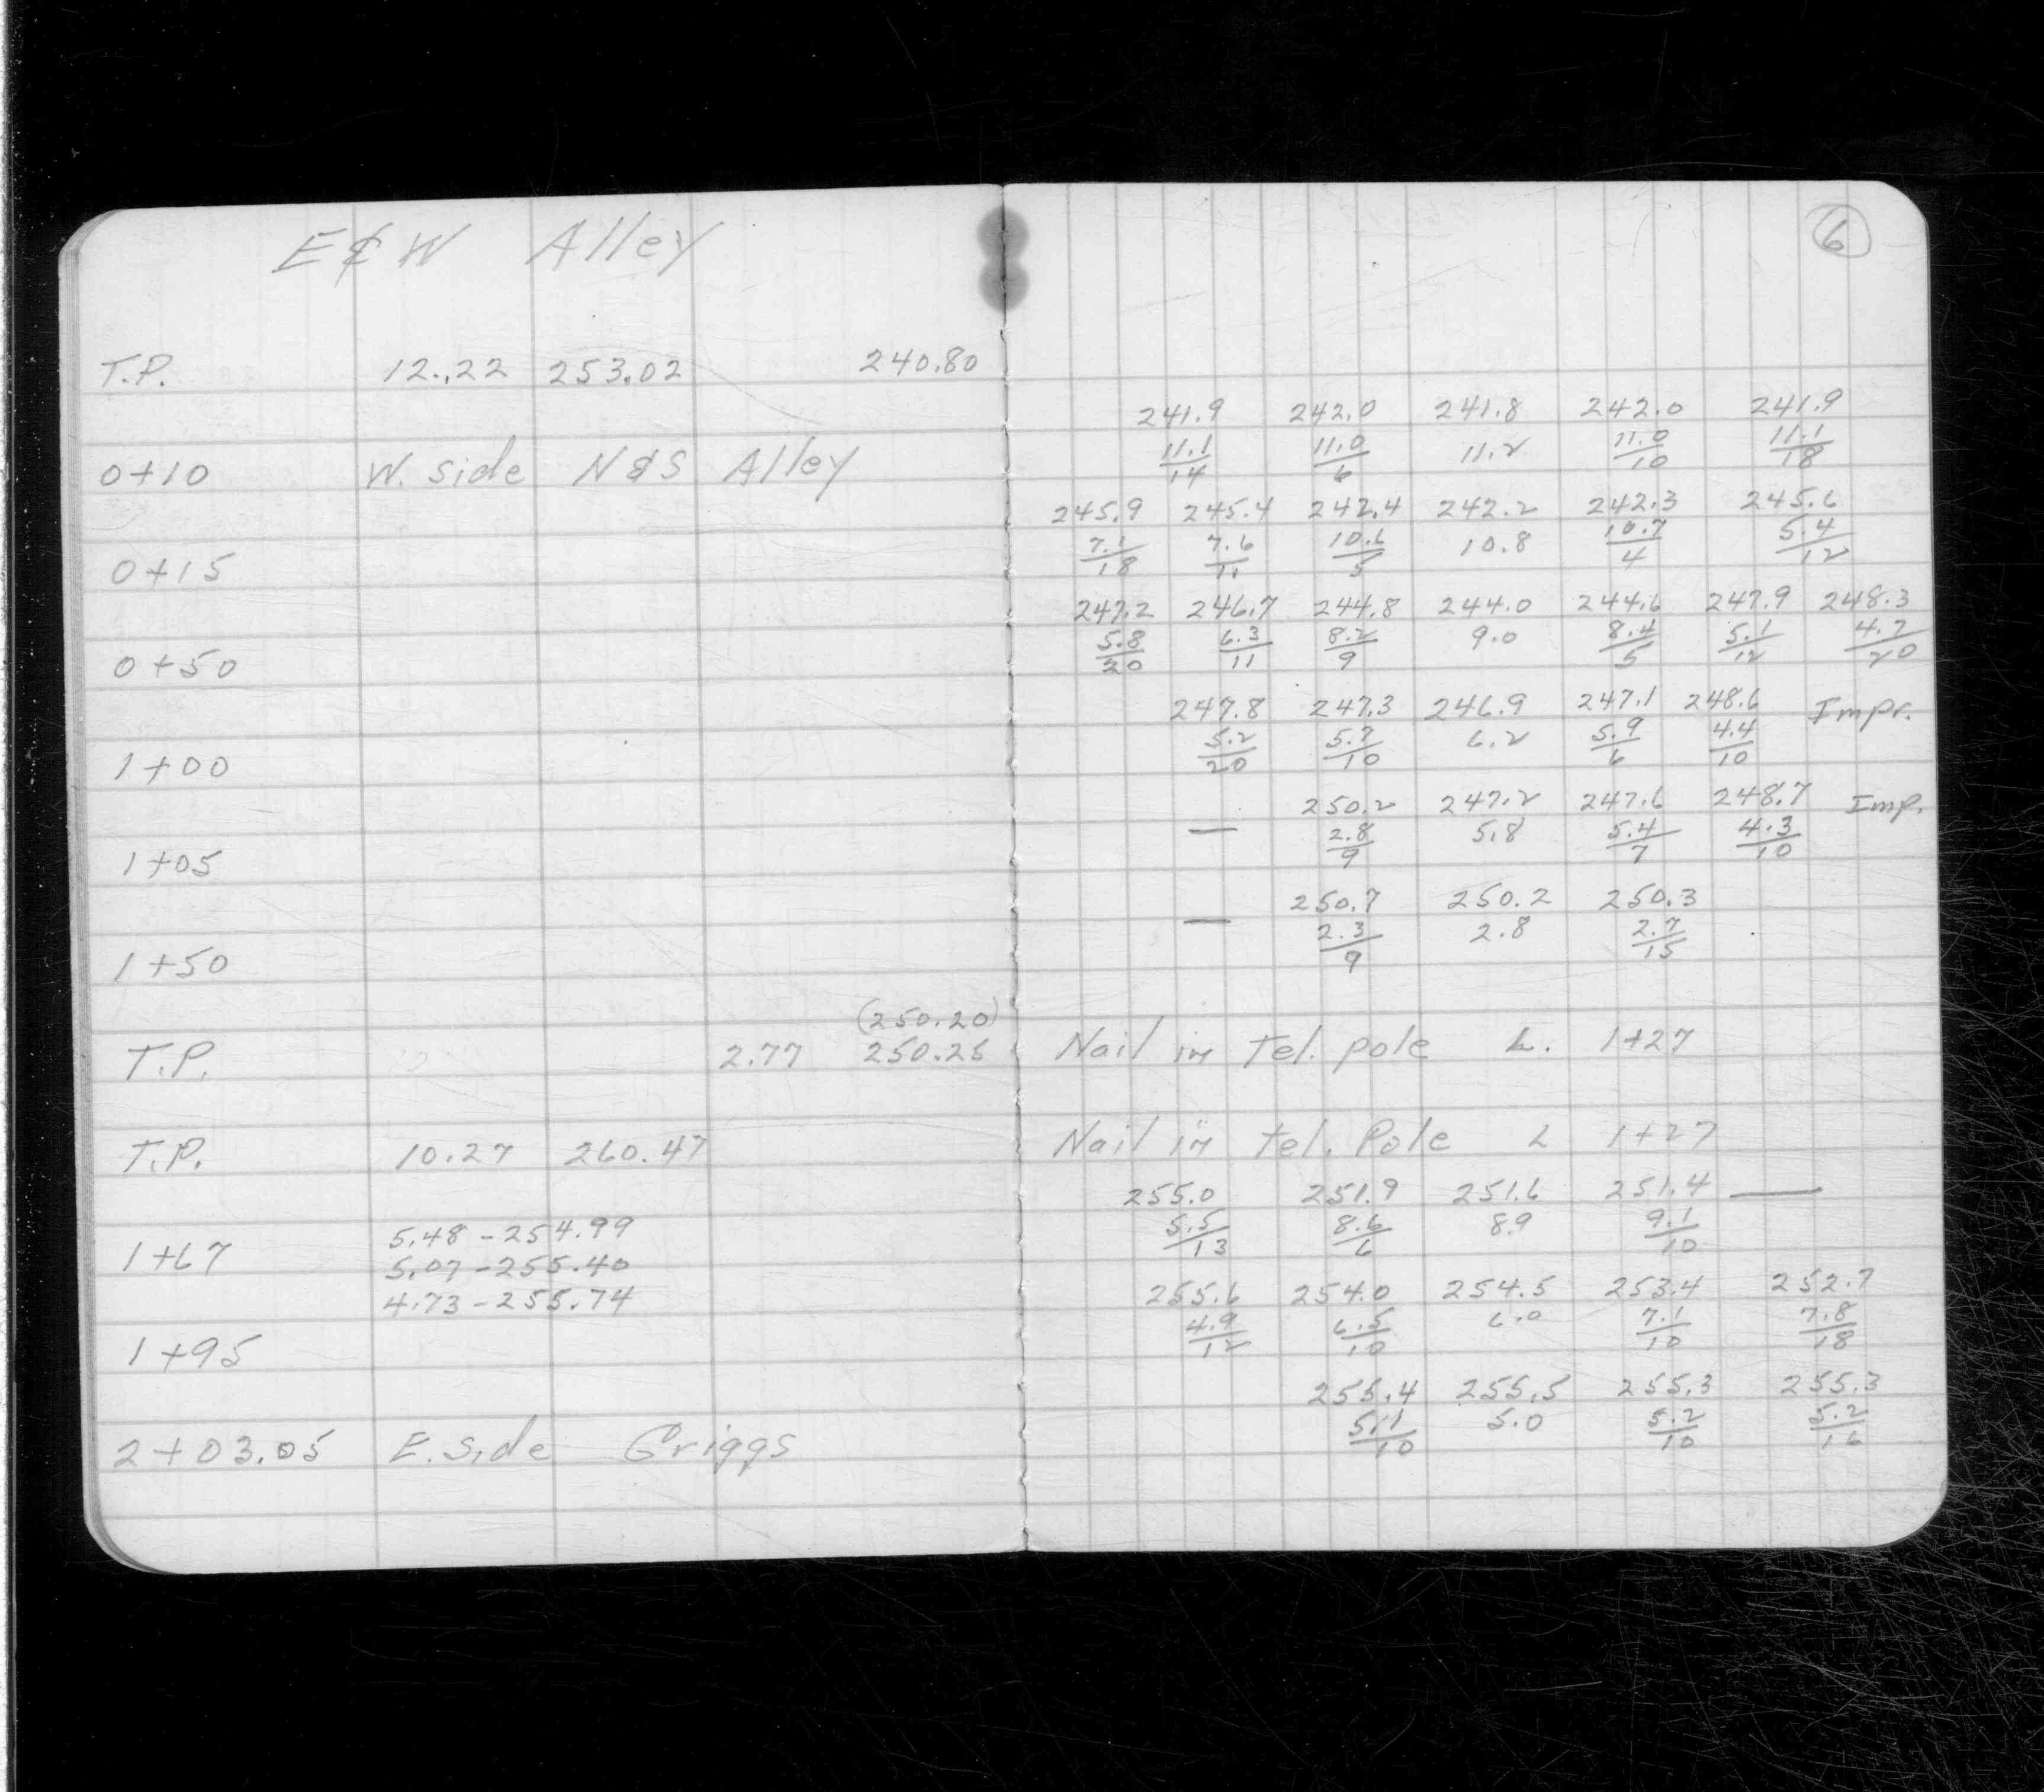 E & W Alley
6
T.P. 12.22 253.02 240.80
241.9 242.0 241.8 242.0 241.9
0+10 W. side N & S Alley 11.1/14 11.0/6 11.2 11.0/10 11.1/18
245.9 245.4 242.4 242.2 242.3 245.6
0+15 7.1/18 7.6/11 10.6/5 10.8 10.7/4 5.4/12
247.2 246.7 244.8 244.0 244.6 247.9 248.3
0+50 5.8/20 6.3/11 8.2/9 9.0 8.4/5 5.1/12 4.7/20
247.8 247.3 246.9 247.1 248.6 Impr.
1+00 5.2/20 5.7/10 6.2 5.9/6 4.4/10
250.2 247.2 247.6 248.7 Imp.
1+05 — 2.8/9 5.8 5.4/7 4.3/10
250.7 250.2 250.3
1+50 — 2.3/9 2.8 2.7/15
(250.20)
T.P. 2.77 250.25 Nail in tel. pole L. 1+27
T.P. 10.27 260.47 Nail in tel. Pole L 1+27
255.0 251.9 251.6 251.4 —
5.48 - 254.99 5.5/13 8.6/6 8.9 9.1/10
1+67 5.07 - 255.40
4.73 - 255.74 255.6 254.0 254.5 253.4 252.7
1+95 4.9/12 6.5/10 6.0 7.1/10 7.8/18
255.4 255.5 255.3 255.3
2+03.05 E. Side Griggs 5.1/10 5.0 5.2/10 5.2/16